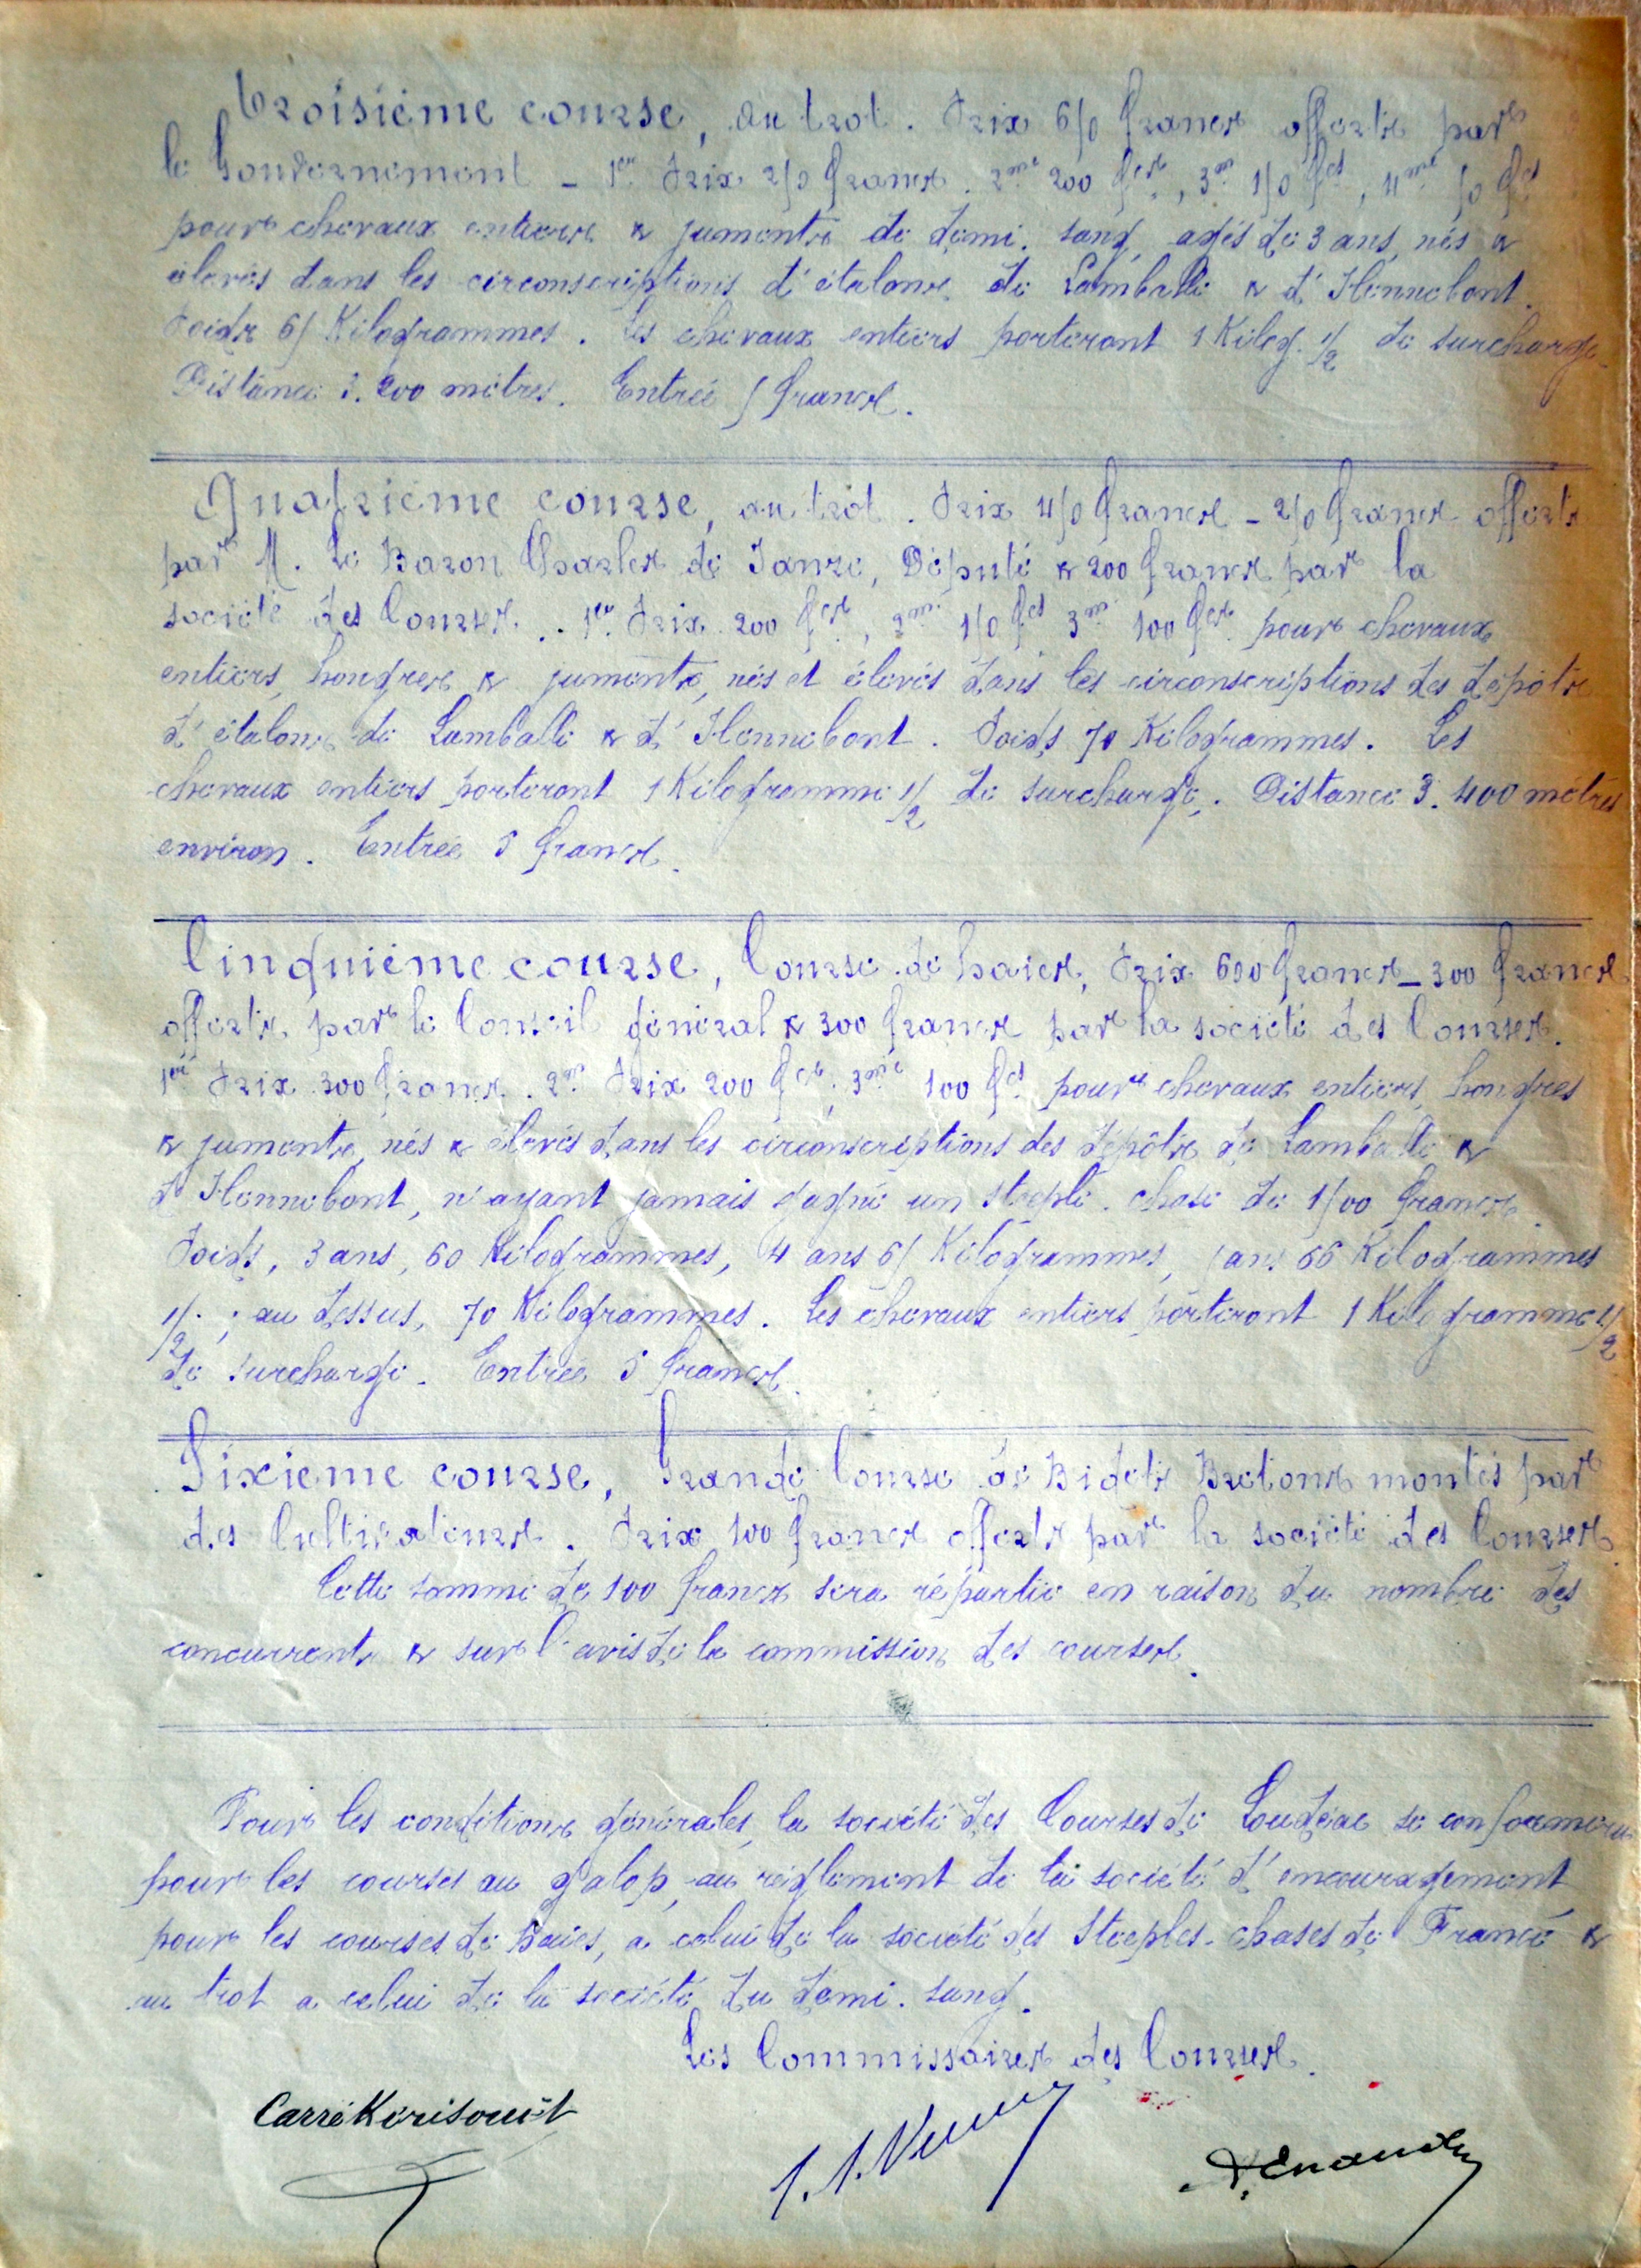 Troisième course, au trot. Prix 650 francs offerts par
le Gouvernement – 1er Prix 250 francs. 2me 200 fcs, 3me 150 fcs, 4me 50 fcs
pour chevaux entiers & juments de demi-sang, agés de 3 ans, nés &
élevés dans les circonscriptions d'étalons de Lamballe & d'Hennebont.
Poids 65 Kilogrammes. Les chevaux entiers porteront 1 Kilog. 1/2 de surcharge.
Distance 3.200 mètres. Entrée 5 francs.
Quatrième course, au trot. Prix 450 francs – 250 francs offerts
par M. Le Baron Charles de Janzé, Député & 200 francs par la
société des Courses. . 1er Prix 200 fcs, 2me 150 fcs 3me 100 fcs pour chevaux
entiers, hongres & juments, nés et élevés dans les circonscriptions des dépôts
d'étalons de Lamballe & d'Hennebont. Poids 70 Kilogrammes. Les
chevaux entiers porteront 1 Kilogramme 1/2 de surcharge. Distance 3.400 mètres
environ. Entrée 5 francs.
Cinquième course, Course de haies, Prix 600 francs – 300 francs
offerts par le Conseil général & 300 francs par la société des Courses.
1er Prix 300 francs. 2me Prix 200 fcs, 3me 100 fcs pour chevaux entiers, hongres
& juments, nés & élevés dans les circonscriptions des dépôts de Lamballe &
d'Hennebont, n'ayant jamais gagné un steeple-chase de 1500 francs.
Poids, 3 ans, 60 Kilogrammes, 4 ans 65 Kilogrammes, 5 ans 66 Kilogrammes
1/2 ; au dessus, 70 Kilogrammes. Les chevaux entiers porteront 1 Kilogramme 1/2
de surcharge. Entrée 5 francs.
Sixième course, Grande Course de Bidets Bretons montés par
des Cultivateurs. Prix 100 francs offerts par la société des Courses.
Cette somme de 100 francs sera répartie en raison du nombre des
concurrents & sur l'avis de la commission des courses.
Pour les conditions générales, la société des Courses de Loudéac se conformera
pour les courses au galop, au règlement de la société d'encouragement
pour les courses de Haies, a celui de la société des Steeples-chases de France &
au trot a celui de la société du demi-sang.
Les Commissaires des Courses.
Carré Kerisouët